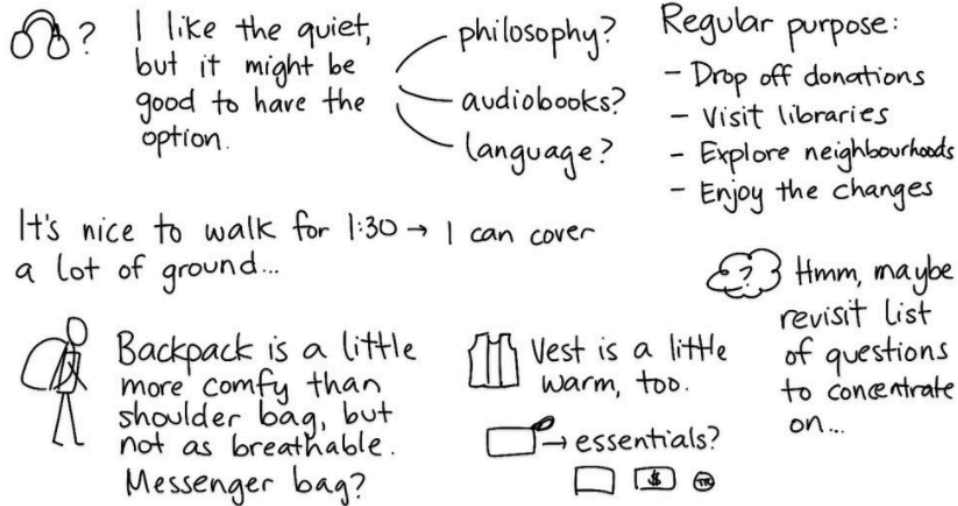 ? I like the quiet,
but it might be
good to have the
option.
philosophy?
audiobooks?
language?
Regular purpose:
- Drop off donations
- Visit libraries
- Explore neighbourhoods
- Enjoy the changes
It's nice to walk for 1:30 → I can cover
a lot of ground...
? Hmm, maybe
revisit list
of questions
to concentrate
on...
Backpack is a little
more comfy than
shoulder bag, but
not as breathable.
Messenger bag?
Vest is a little
warm, too.
→ essentials?
$